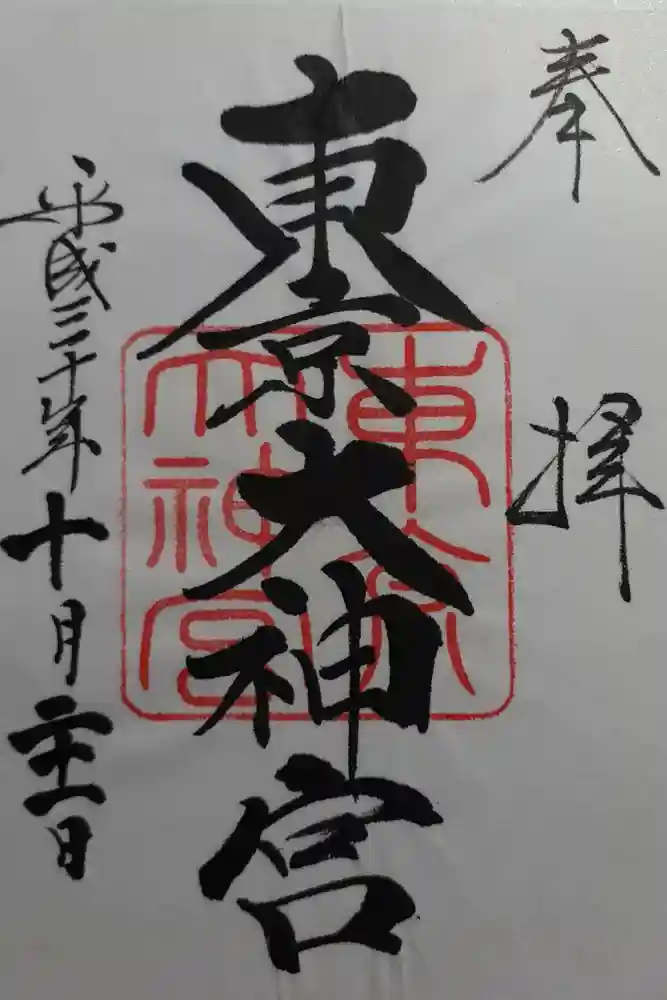 奉拝
東京大神宮
平成三十年十月二十一日
東京
大神宮